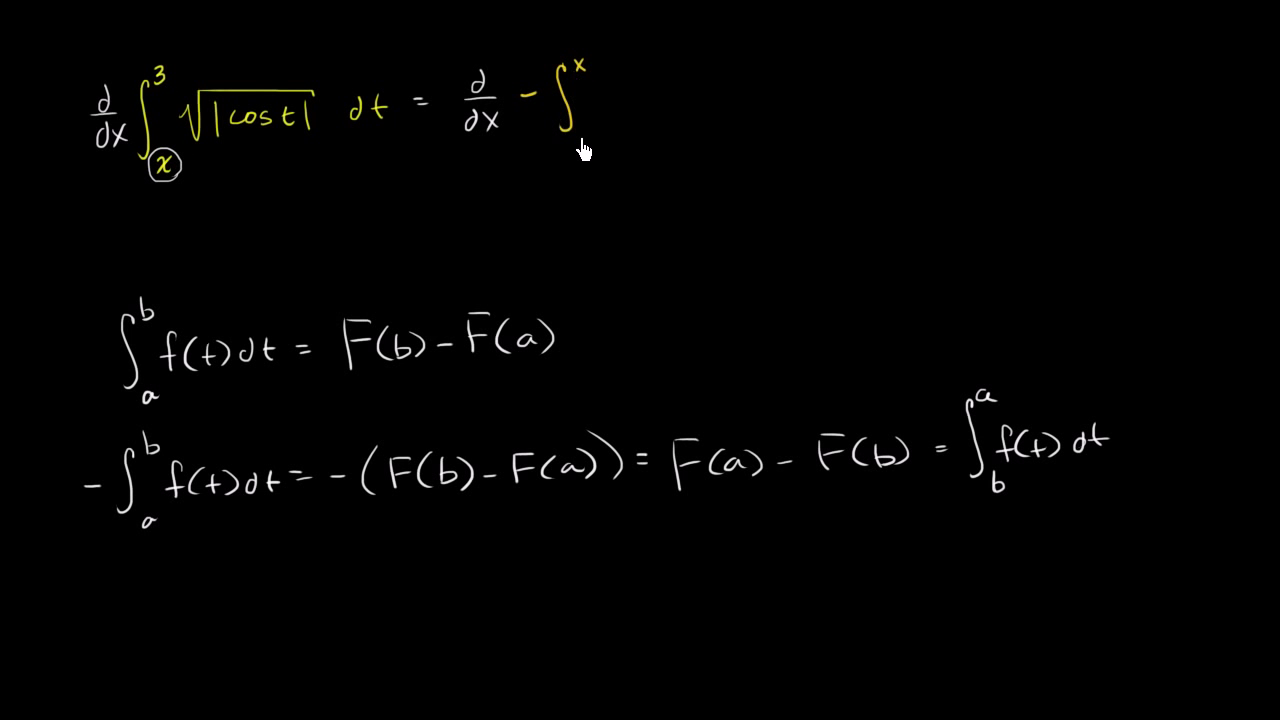 d/dx ∫_x^3 √|cos t| dt = d/dx - ∫^x
∫_a^b f(t)dt = F(b) - F(a)
- ∫_a^b f(t)dt = -(F(b) - F(a)) = F(a) - F(b) = ∫_b^a f(t) dt